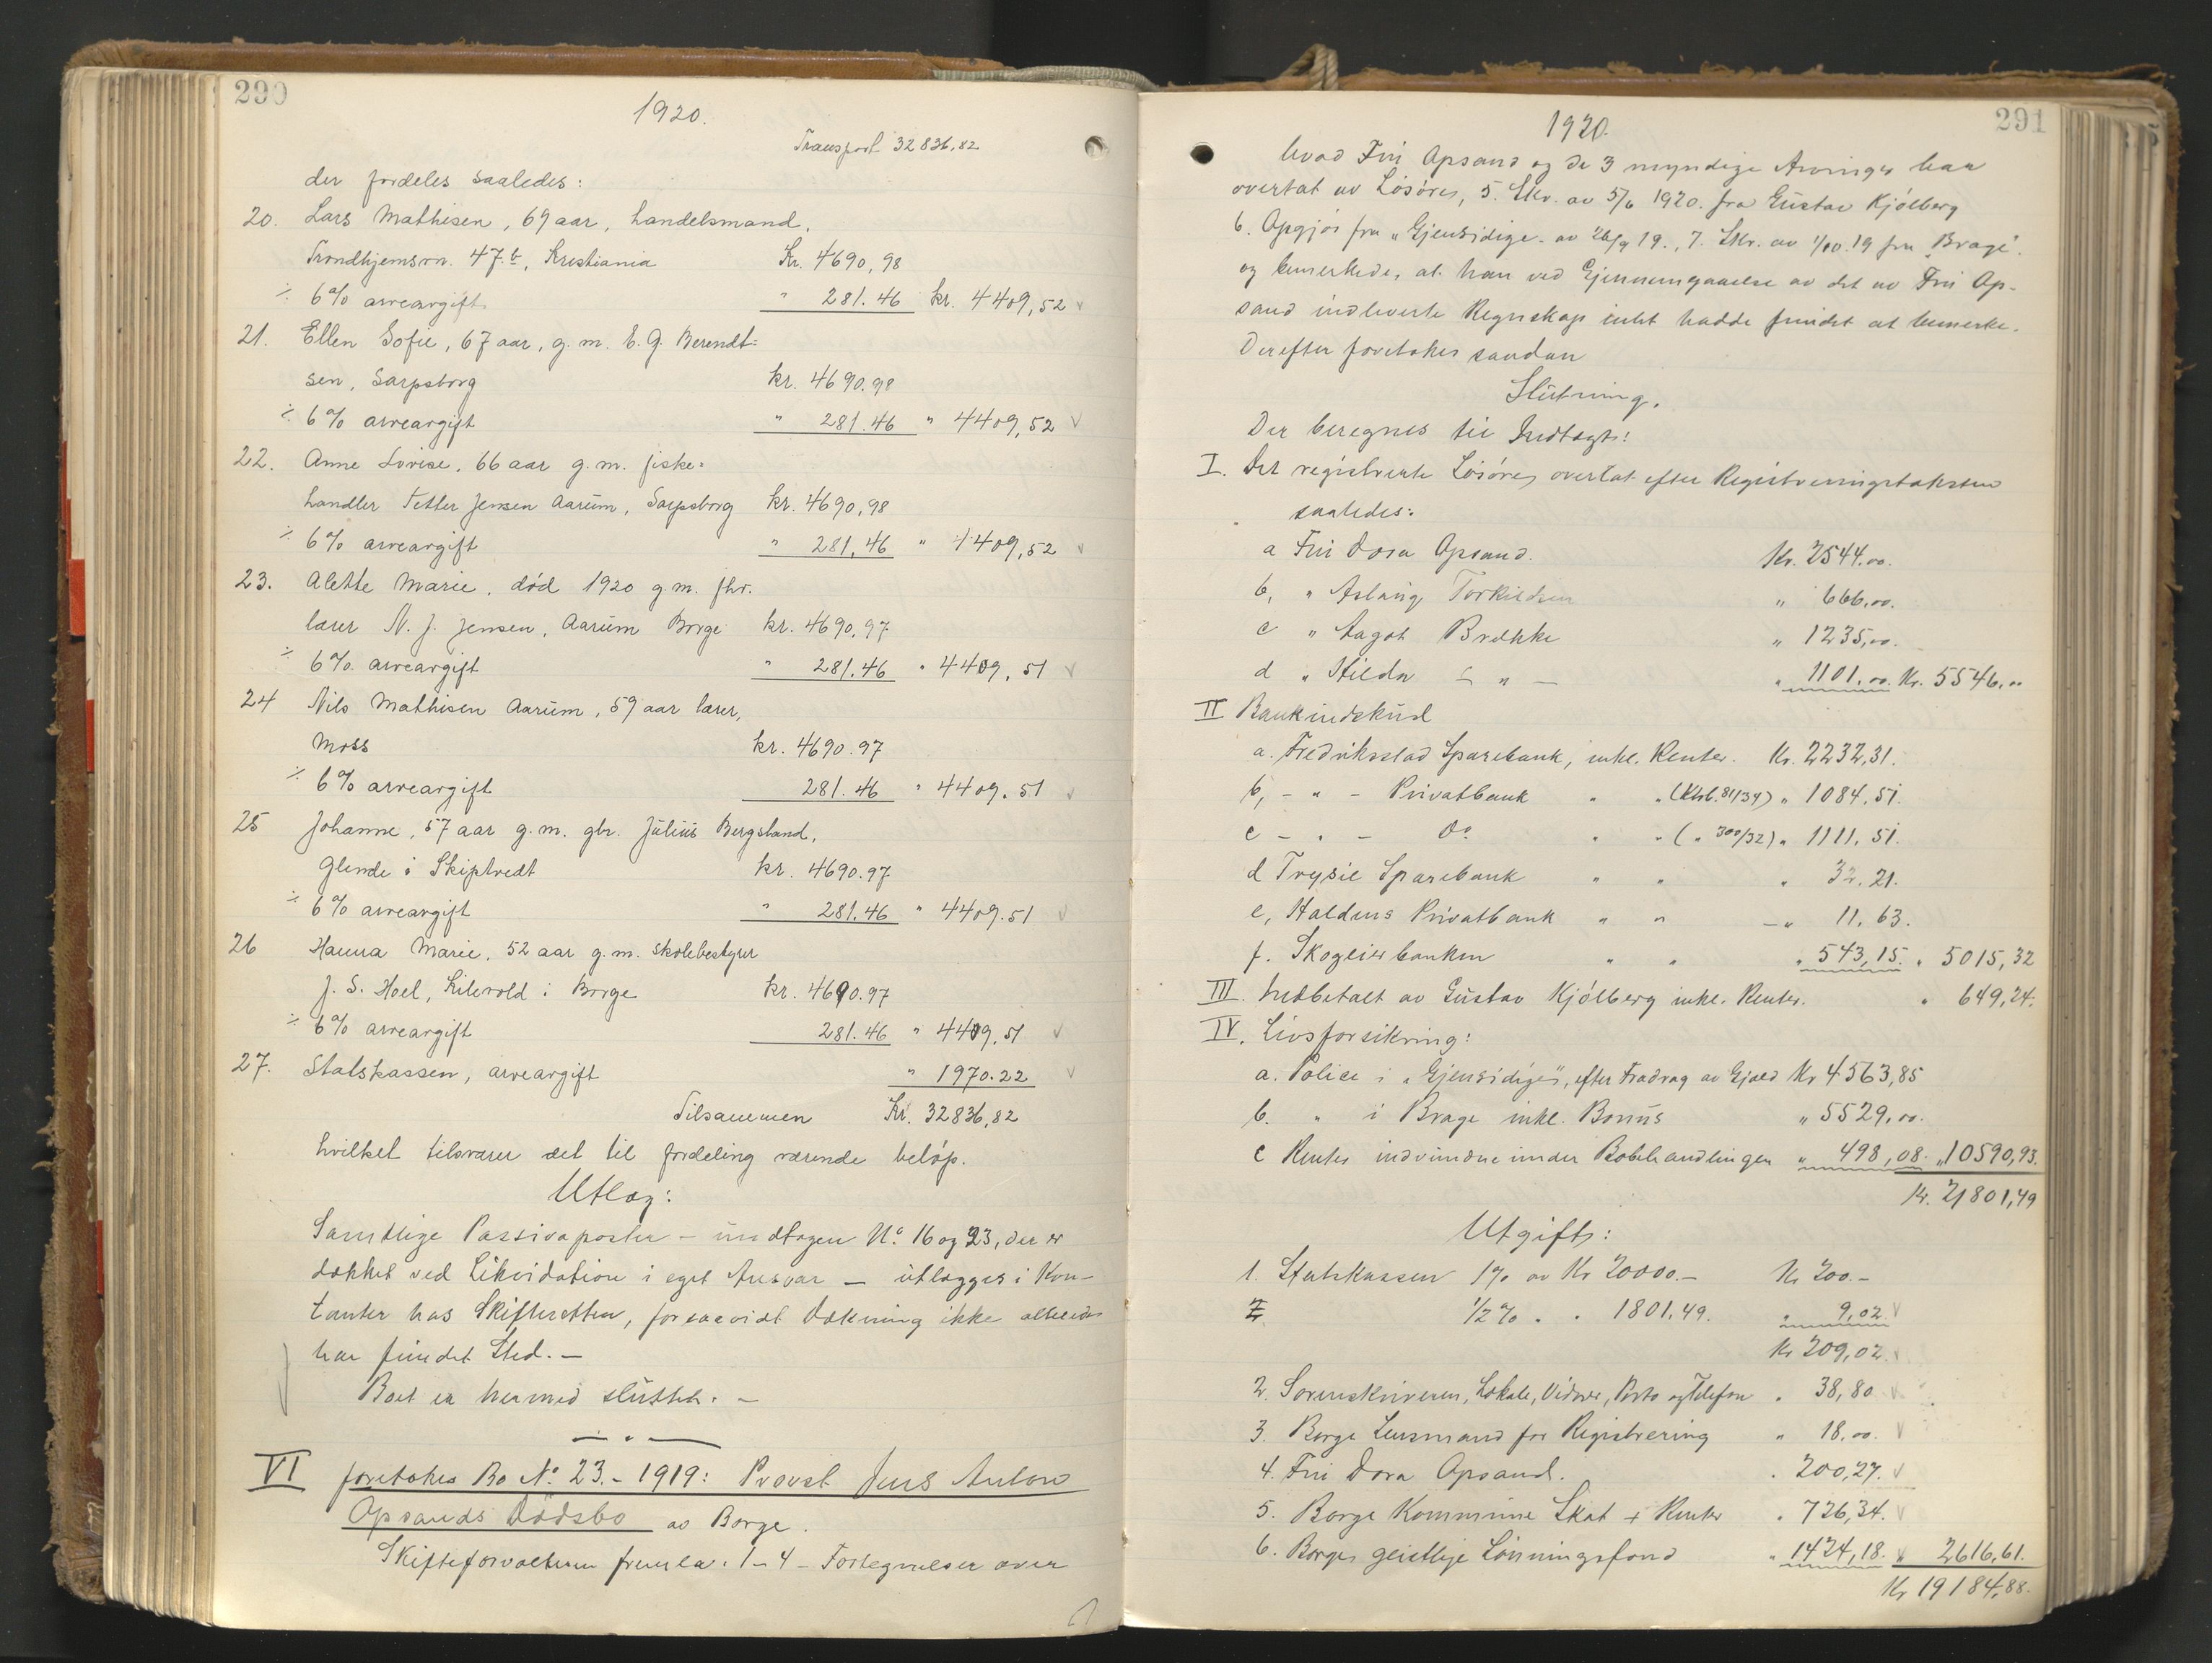 290
1920.
Transport 32836,82
der fordeles saaledes:
20. Lars Mathisen, 69 aar, handelsmand,
Trondhjemsvn. 47.b, Kristiania Kr. 4690,98
÷ 6% arveavgift " 281.46 kr. 4409,52
21. Ellen Sofie, 67 aar, g.m. E.G. Berendt=
sen, Sarpsborg kr. 4690.98
÷ 6% arveavgift " 281.46 " 4409,52
22. Anne Lovise, 66 aar g.m. fiske=
handler Petter Jensen Aarum, Sarpsborg kr. 4690,98
÷ 6% arveavgift " 281,46 " 4409,52
23. Alette Marie, död 1920 g.m. fhv.
lærer N. J. Jensen, Aarum Borge kr. 4690,97
÷ 6% arveavgift " 281.46 " 4409,51
24 Nils Mathisen Aarum, 59 aar lærer,
Moss kr. 4690.97
÷ 6% arveavgift 281.46 " 4409.51
25 Johanne, 57 aar g.m. gbr. Julius Bergsland,
Glende i Skiptvedt kr. 4690.97
÷ 6% arveavgift " 281.46 " 4409.51
26 Hanna Marie, 52 aar g.m. skolebestyrer
J. S. Hoel, Lilevold i Borge kr. 4690.97
÷ 6% arveavgift 281.46 " 4409,51
27. Statskassen, arveavgift " 1970.22
Tilsammen Kr. 32836,82
hvilket tilsvarer det til fordeling værende beløp.
Utlæg:
Samtlige Passivaposter – undtagen No. 16 og 23, der er
dækket ved Likvidation i eget Ansvar – utlægges i Kon-
tanter hos Skifteretten, forsaavidt Dækning ikke allerede
har fundet Sted. –
Boet er hermed sluttet. –
VI foretokes Bo No. 23. - 1919: Provst Jens Anton
Apsands Dødsbo av Borge.
Skifteforvalteren fremla: 1–4 – Fortegnelser over
291
1920.
hvad Fru Apsand og de 3 myndige Arvinger har
overtat av Løsøret, 5. Skr. av 5/6 1920. fra Gustav Kjölberg
6. Opgjør fra "Gjensidige" av 26/9 19., 7. Skr. av 1/10.19 fra "Brage".
og bemerkede, at han ved Gjennemgaaelse av det av Fru Ap-
sand indleverte Regnskap intet hadde fundet at bemerke.
Derefter foretokes saadan
Slutning.
Der beregnes til Indtægt:
I. Det registrerte Løsøre, overtat efter Registreringstaksten
saaledes:
a Fru Dora Apsand. Kr. 2544.00.
b, " Aslaug Torkildsen " 666,00.
c " Aagot Brække " 1235,00.
d " Hilda – " – " 1101.00. Kr. 5546.00
II Bankindskud
a. Fredriksstad Sparebank, inkl. Renter. Kr. 2232,31.
b, – " – Privatbank " " (Ktrb. 81/34) " 1084,51.
c – " – Do. " " ( " 300/32) " 1111.51.
d Trysil Sparebank " " " 32.21.
e, Haldens Privatbank " " – " 11.63.
f. Skogeierbanken " " " 543,15. " 5015,32
III. Indbetalt av Gustav Kjölberg inkl. Renter. " 649,24.
IV. Livsforsikring:
a. Police i "Gjensidige", efter Fradrag av Gjæld Kr 4563,85
b. " i Brage inkl. Bonus " 5529,00.
c Renter indvundne under Bobehandlingen " 498,08. " 10590,93.
Kr. 21801,49
Utgift:
1. Statskassen 1% av Kr 20000.– Kr 200.–
1/2% " " 1801.49. " 9,02
Kr 209,02.
2. Sorenskriveren, Lokale, Vidner, Porto og Telefon " 38,80
3. Borge Lensmand for Registrering " 18.00.
4. Fru Dora Apsand. " 200,27.
5. Borge Kommune Skat + Renter " 726,34.
6. Borges geistlige Lønningsfond " 1424,18. " 2616,61.
Kr 19184,88.